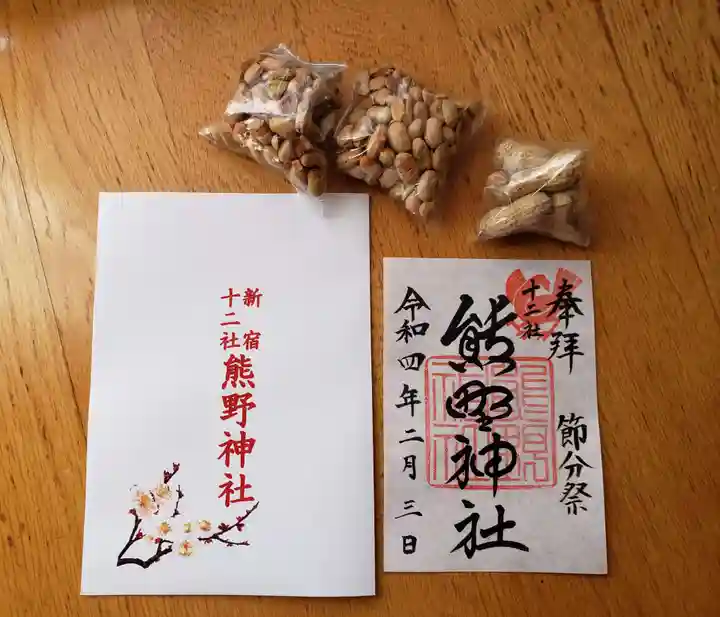 新宿
十二社
熊野神社
奉拝
節分祭
十二社
熊野神社
令和四年二月三日